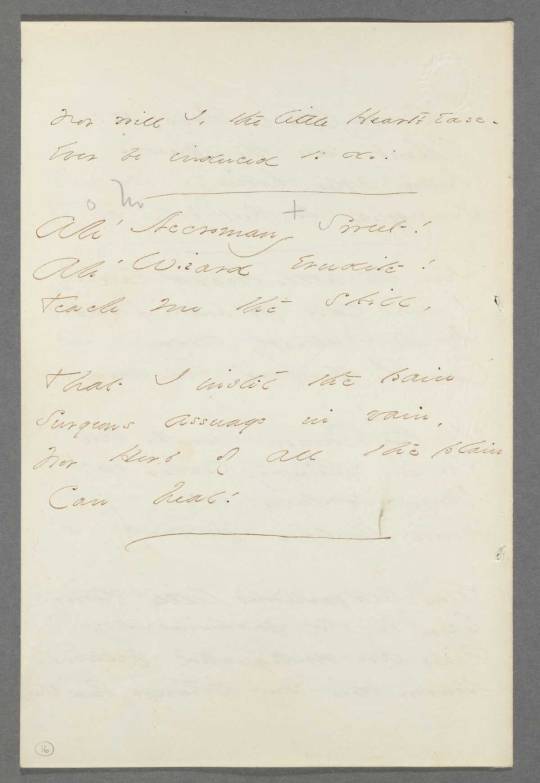 Nor will I, the little Heart's Ease -
Ever be induced to do!
o No
+
Ah' Necromancy Sweet!
Ah' Wizard Erudite!
Teach me the Skill,
That I instil the pain
Surgeons assuage in vain,
Nor Herb of all the plain
Can heal!
16